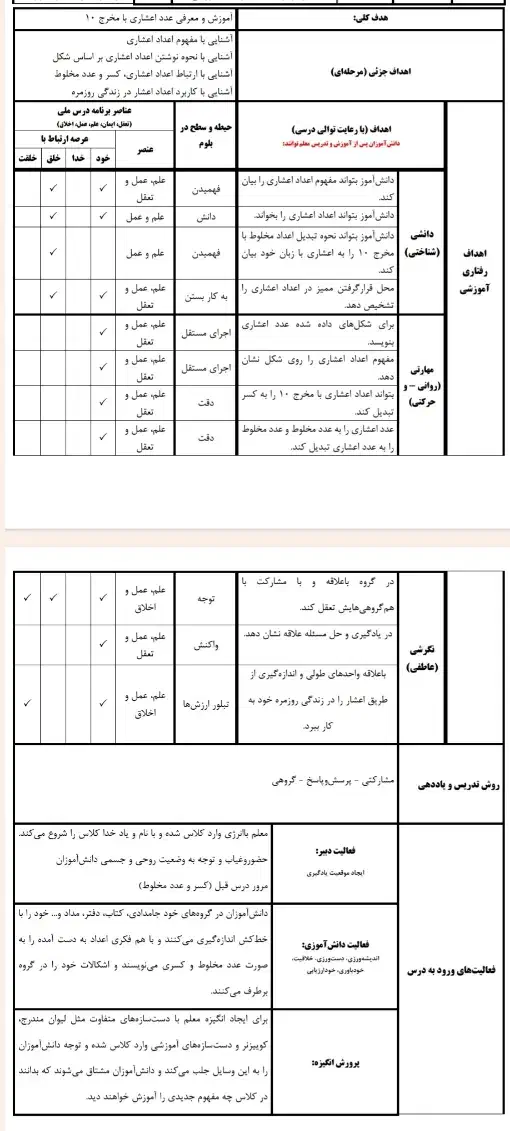 هدف کلی:
آموزش و معرفی عدد اعشاری با مخرج ۱۰
اهداف جزئی (مرحله‌ای)
آشنایی با مفهوم اعداد اعشاری
آشنایی با نحوه نوشتن اعداد اعشاری بر اساس شکل
آشنایی با ارتباط اعداد اعشاری، کسر و عدد مخلوط
آشنایی با کاربرد اعداد اعشار در زندگی روزمره
اهداف رفتاری آموزشی
اهداف (با رعایت توالی درسی)
دانش‌آموزان پس از آموزش و تدریس معلم توانند:
حیطه و سطح در بلوم
عناصر برنامه درس ملی
(تعقل، ایمان، علم، عمل، اخلاق)
عنصر
عرصه ارتباط با
خود
خدا
خلق
خلقت
دانشی (شناختی)
دانش‌آموز بتواند مفهوم اعداد اعشاری را بیان
کند.
فهمیدن
علم، عمل و
تعقل
✓ ✓
دانش‌آموز بتواند اعداد اعشاری را بخواند.
دانش
علم و عمل
✓ ✓
دانش‌آموز بتواند نحوه تبدیل اعداد مخلوط با
مخرج ۱۰ را به اعشاری با زبان خود بیان
کند.
فهمیدن
علم و عمل
✓
محل قرارگرفتن ممیز در اعداد اعشاری را
تشخیص دهد.
به کار بستن
علم، عمل و
تعقل
✓ ✓
مهارتی
(روانی – و
حرکتی)
برای شکل‌های داده شده عدد اعشاری
بنویسد.
اجرای مستقل
علم، عمل و
تعقل
✓
مفهوم اعداد اعشاری را روی شکل نشان
دهد.
اجرای مستقل
علم، عمل و
تعقل
✓
بتواند اعداد اعشاری با مخرج ۱۰ را به کسر
تبدیل کند.
دقت
علم، عمل و
تعقل
✓
عدد اعشاری را به عدد مخلوط و عدد مخلوط
را به عدد اعشاری تبدیل کند.
دقت
علم، عمل و
تعقل
✓
نگرشی
(عاطفی)
در گروه باعلاقه و با مشارکت با
هم‌گروهی‌هایش تعقل کند.
توجه
علم، عمل و
اخلاق
✓ ✓ ✓
در یادگیری و حل مسئله علاقه نشان دهد.
واکنش
علم، عمل و
تعقل
✓
باعلاقه واحدهای طولی و اندازه‌گیری از
طریق اعشار را در زندگی روزمره خود به
کار ببرد.
تبلور ارزش‌ها
علم، عمل و
اخلاق
✓ ✓
روش تدریس و یاددهی
مشارکتی - پرسش‌وپاسخ - گروهی
فعالیت‌های ورود به درس
فعالیت دبیر:
ایجاد موقعیت یادگیری
معلم باانرژی وارد کلاس شده و با نام و یاد خدا کلاس را شروع می‌کند.
حضوروغیاب و توجه به وضعیت روحی و جسمی دانش‌آموزان
مرور درس قبل (کسر و عدد مخلوط)
فعالیت دانش‌آموزی:
اندیشه‌ورزی، دست‌ورزی، خلاقیت،
خودباوری، خودارزیابی
دانش‌آموزان در گروه‌های خود جامدادی، کتاب، دفتر، مداد و... خود را با
خط‌کش اندازه‌گیری می‌کنند و با هم فکری اعداد به دست آمده را به
صورت عدد مخلوط و کسری می‌نویسند و اشکالات خود را در گروه
برطرف می‌کنند.
پرورش انگیزه:
برای ایجاد انگیزه معلم با دست‌سازه‌های متفاوت مثل لیوان مندرج،
کوییزنر و دست‌سازه‌های آموزشی وارد کلاس شده و توجه دانش‌آموزان
را به این وسایل جلب می‌کند و دانش‌آموزان مشتاق می‌شوند که بدانند
در کلاس چه مفهوم جدیدی را آموزش خواهند دید.